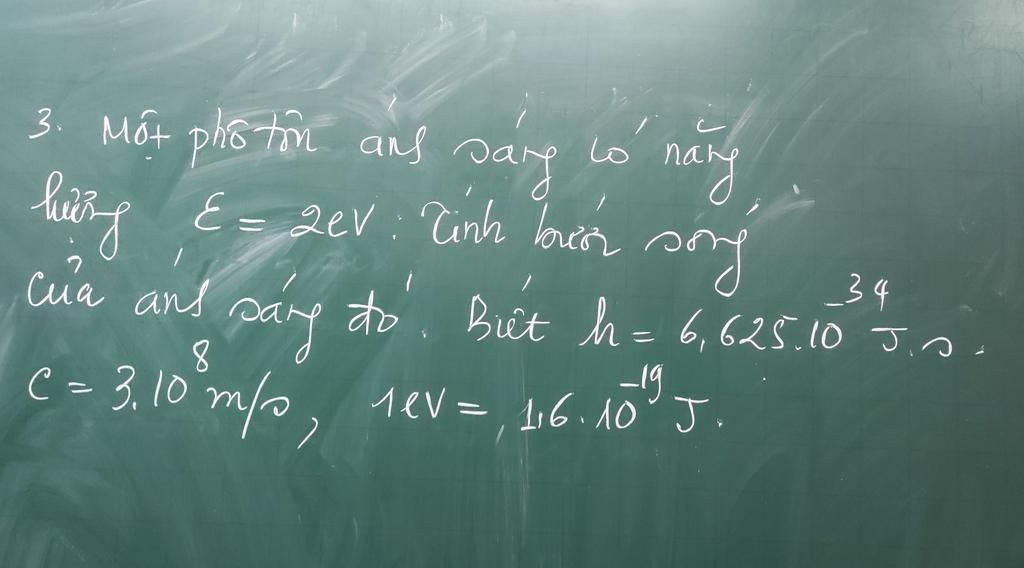 3. Một phôtôn ánh sáng có năng
lượng ε = 2eV. Tính bước sóng
của ánh sáng đó. Biết h = 6,625.10⁻³⁴ J.s.
C = 3.10⁸ m/s, 1eV = 1,6.10⁻¹⁹ J.